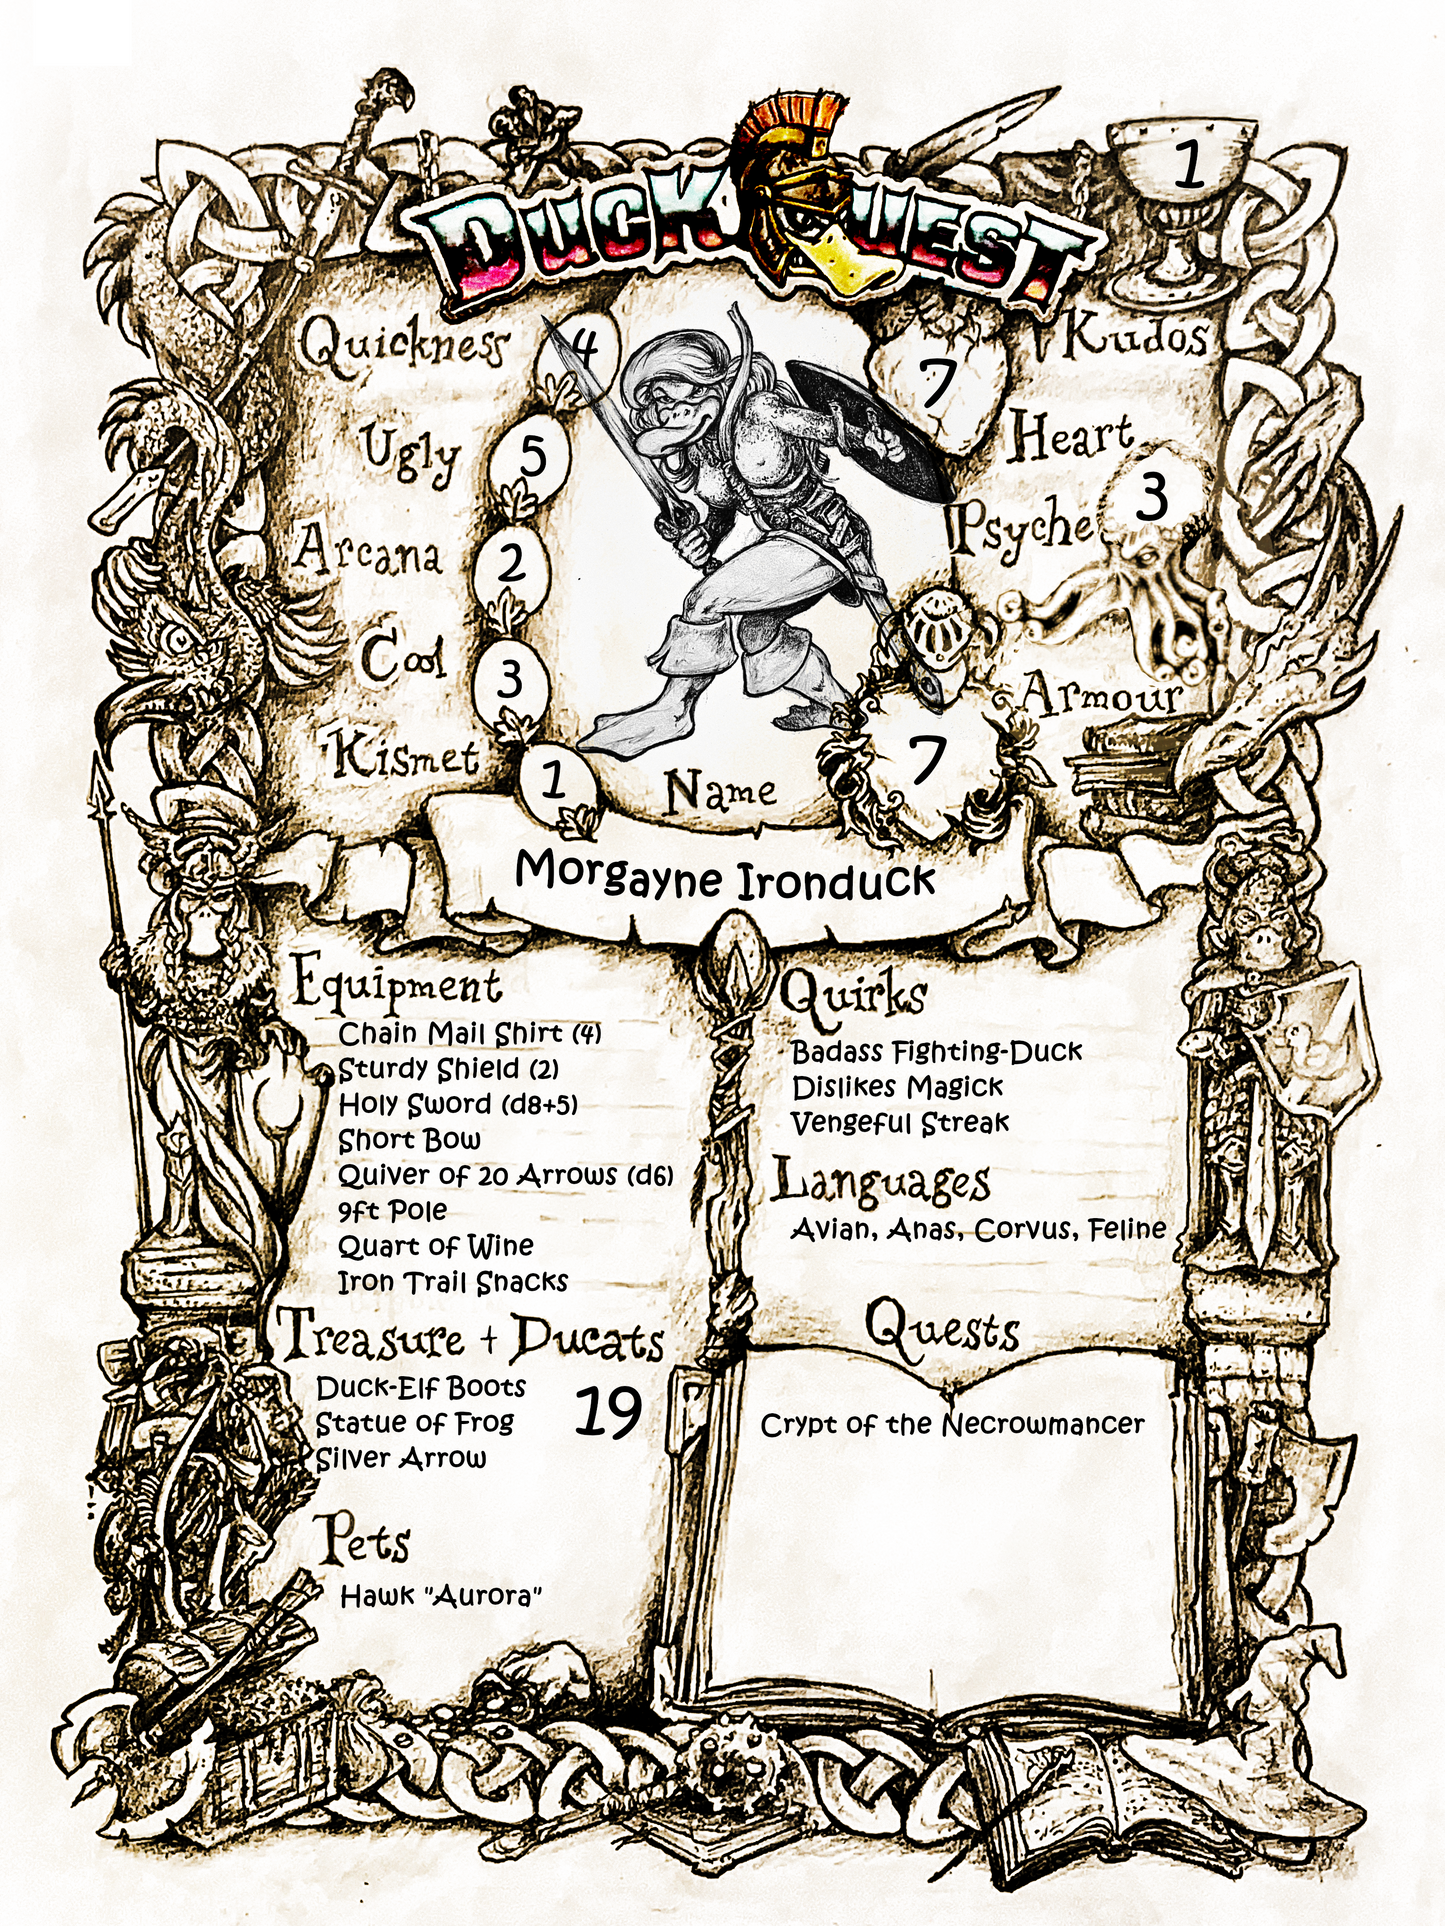 DUCKQUEST
1
Quickness 4
Kudos
7
Heart
Ugly 5
Psyche 3
Arcana 2
Cool 3
Armour
7
Kismet 1
Name
Morgayne Ironduck
Equipment
Chain Mail Shirt (4)
Sturdy Shield (2)
Holy Sword (d8+5)
Short Bow
Quiver of 20 Arrows (d6)
9ft Pole
Quart of Wine
Iron Trail Snacks
Treasure + Ducats
Duck-Elf Boots
Statue of Frog
Silver Arrow
19
Pets
Hawk "Aurora"
Quirks
Badass Fighting-Duck
Dislikes Magick
Vengeful Streak
Languages
Avian, Anas, Corvus, Feline
Quests
Crypt of the Necrowmancer